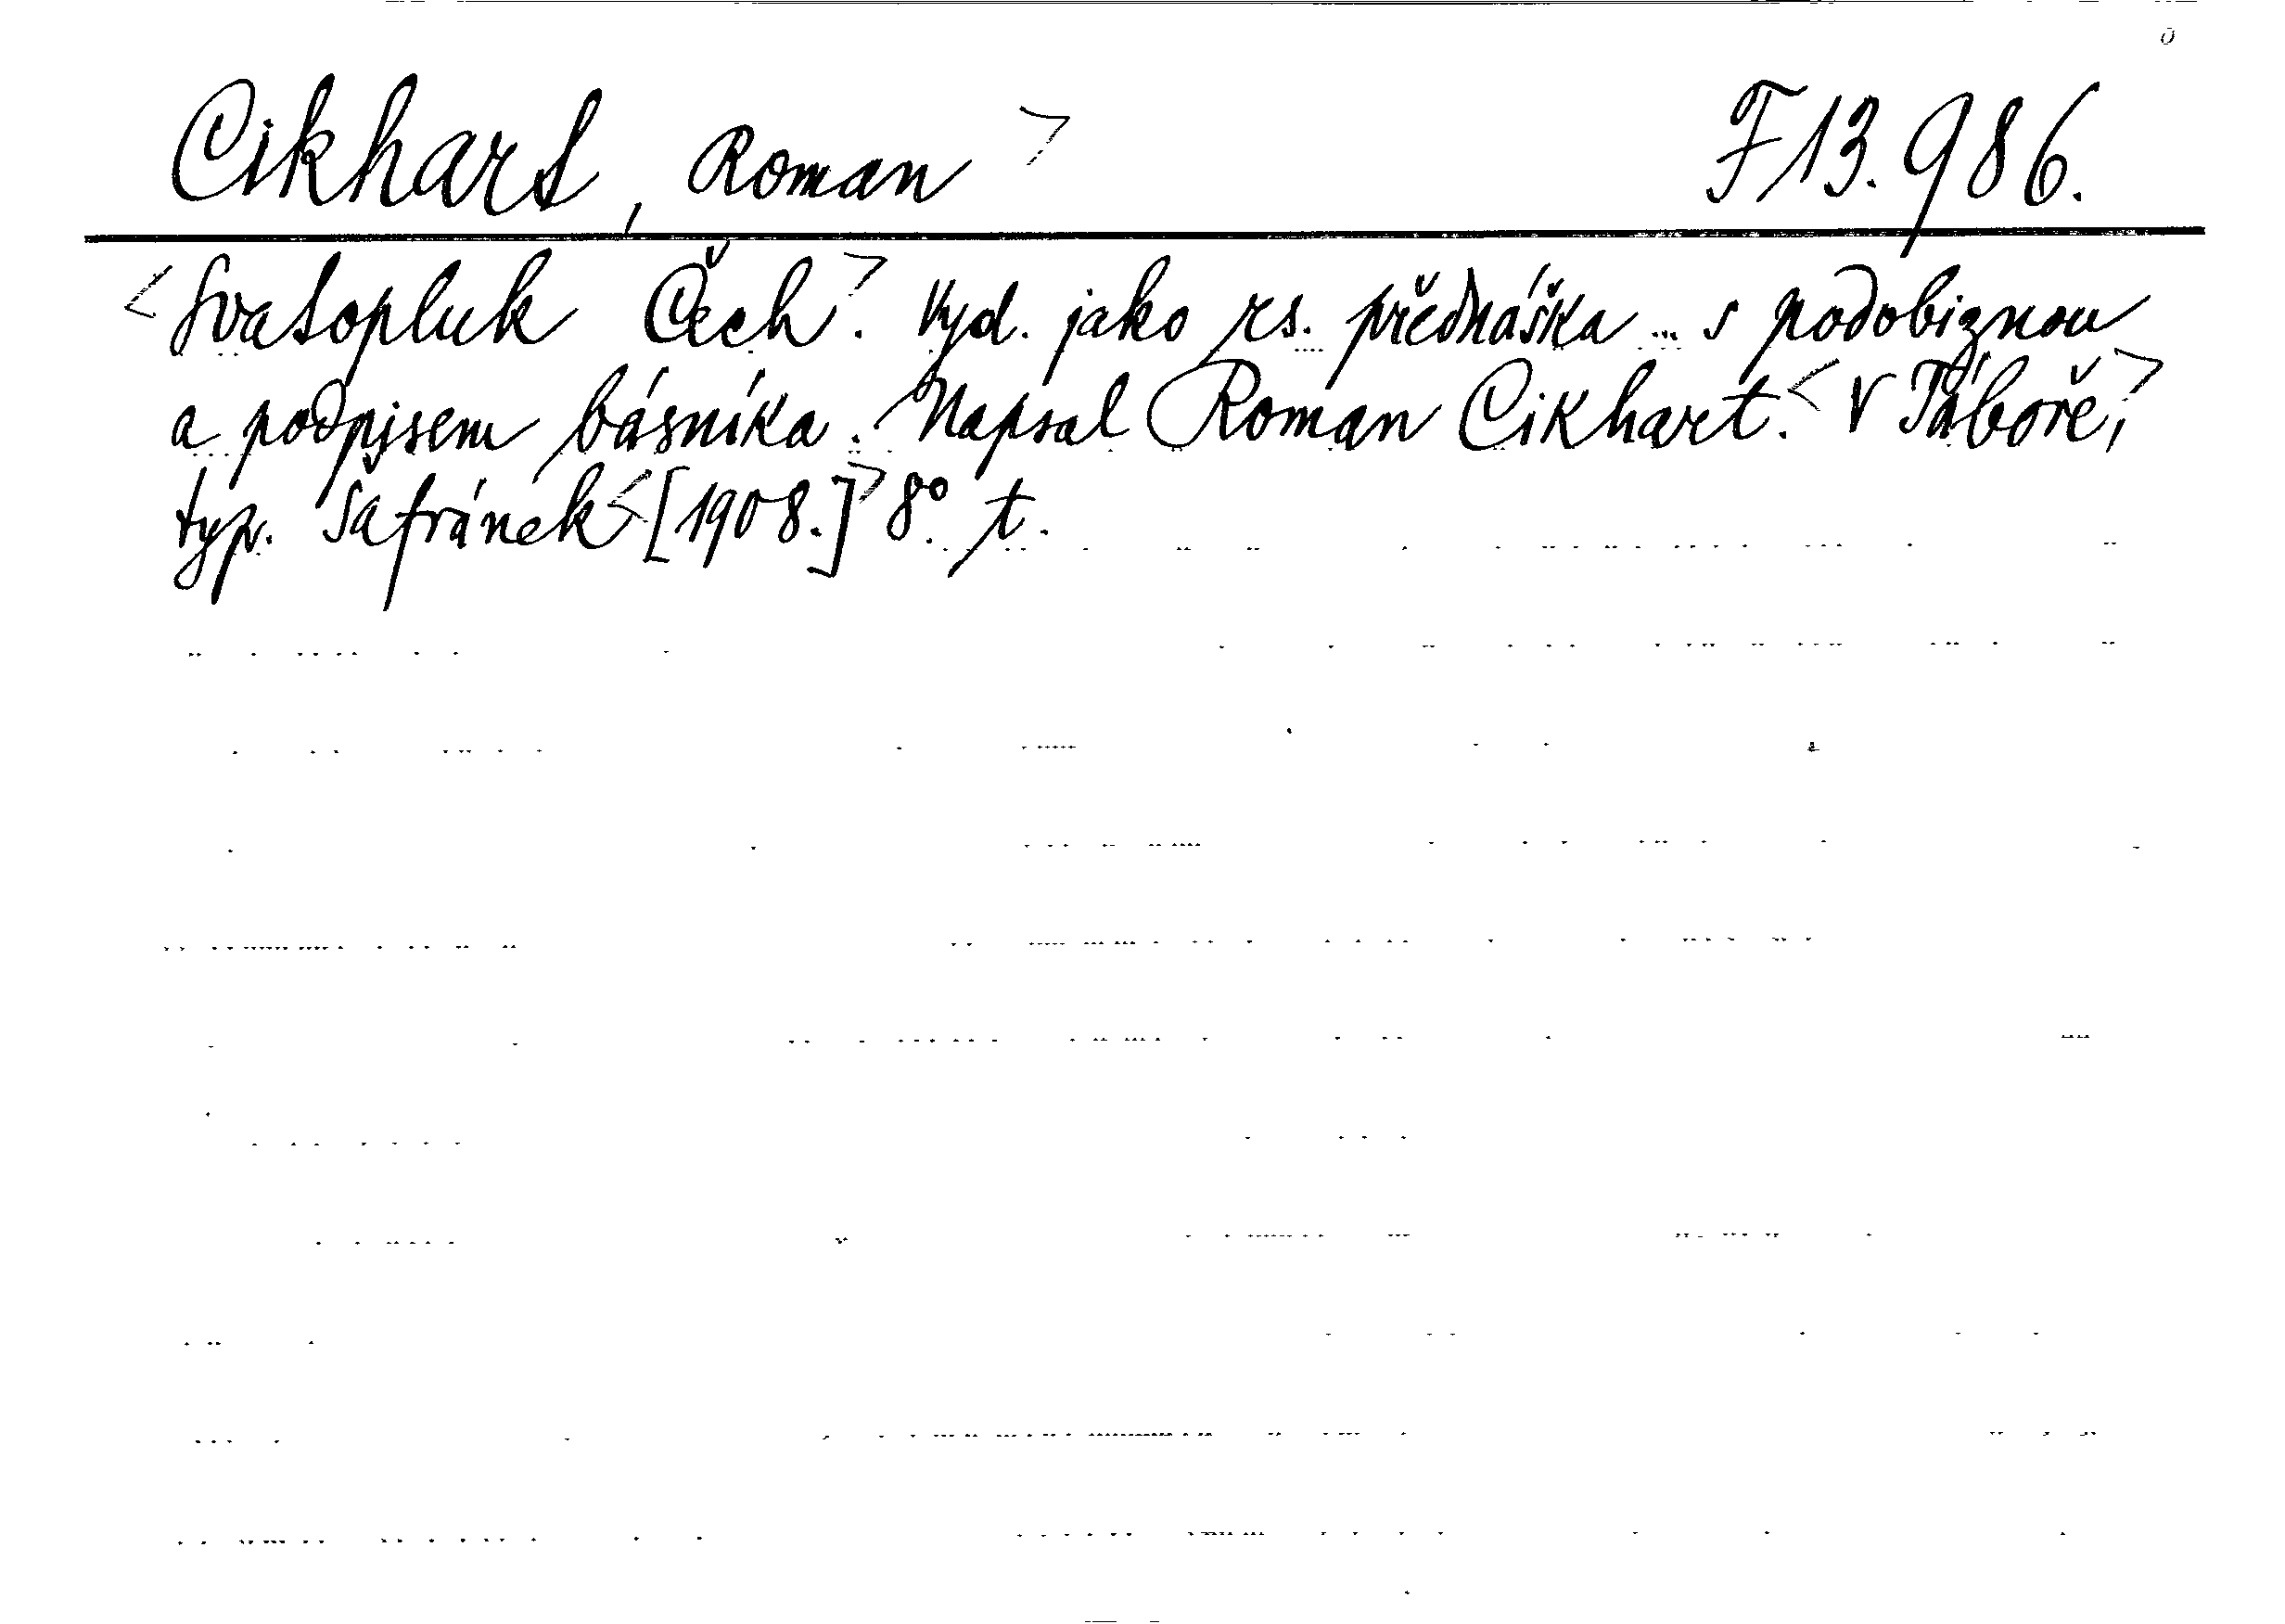 Cikhart, Roman > F 13.986.
<Svatopluk Čech>. Vyd. jako rs. přednáška ... s podobiznou
a podpisem básníka. Napsal Roman Cikhart. < V Táboře,>
typ. Šafránek <[1908.]> 8° t.